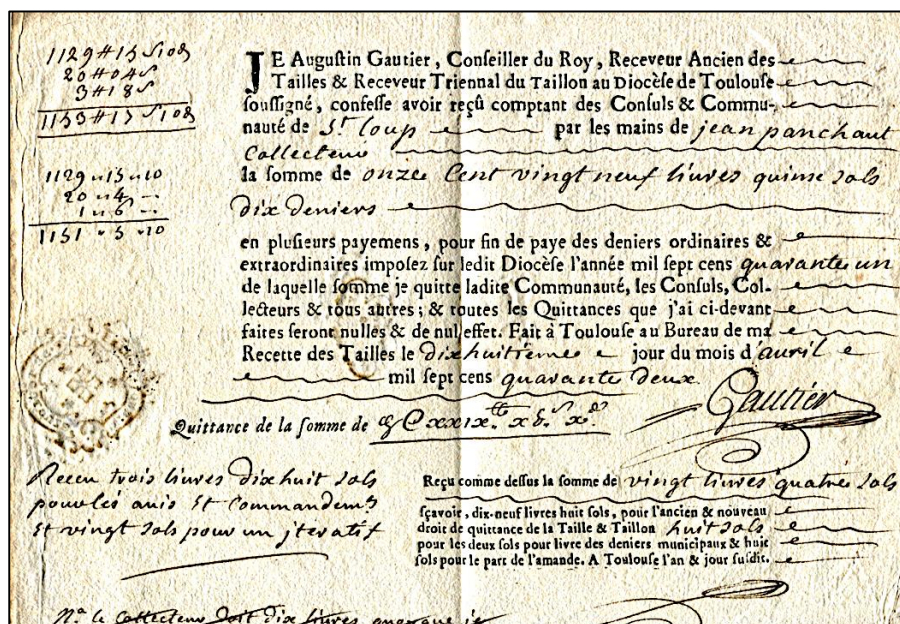 1129 # 15 s 10 d
20 # 04 s
3 # 18 s
1153 # 17 s 10 d
1129 " 15 " 10
20 " 4 "
1 " 6 "
1151 " 5 " 10
JE Augustin Gautier, Conseiller du Roy, Receveur Ancien des
Tailles & Receveur Triennal du Taillon au Diocèse de Toulouse
soussigné, confesse avoir reçû comptant des Consuls & Commu-
nauté de St. loup par les mains de jean panchaut
Collecteur
la somme de onze Cent vingt neuf livres quinse sols
dix deniers
en plusieurs payemens, pour fin de paye des deniers ordinaires &
extraordinaires imposez sur ledit Diocèse l'année mil sept cens quarante un
de laquelle somme je quitte ladite Communauté, les Consuls, Col-
lecteurs & tous autres; & toutes les Quittances que j'ai ci-devant
faites seront nulles & de nul effet. Fait à Toulouse au Bureau de ma
Recette des Tailles le dix huitieme jour du mois d'avril
mil sept cens quarante deux
Gautier
Quittance de la somme de
Receu trois livres dix huit sols
pour les avis Et Commandemts
Et vingt sols pour un jteratif
Reçu comme dessus la somme de vingt livres quatre sols
sçavoir, dix-neuf livres huit sols, pour l'ancien & nouveau
droit de quittance de la Taille & Taillon huit sols
pour les deux sols pour livre des deniers municipaux & huit
sols pour le part de l'amande. A Toulouse l'an & jour susdit.
Na. le Collecteur Doit dix livres